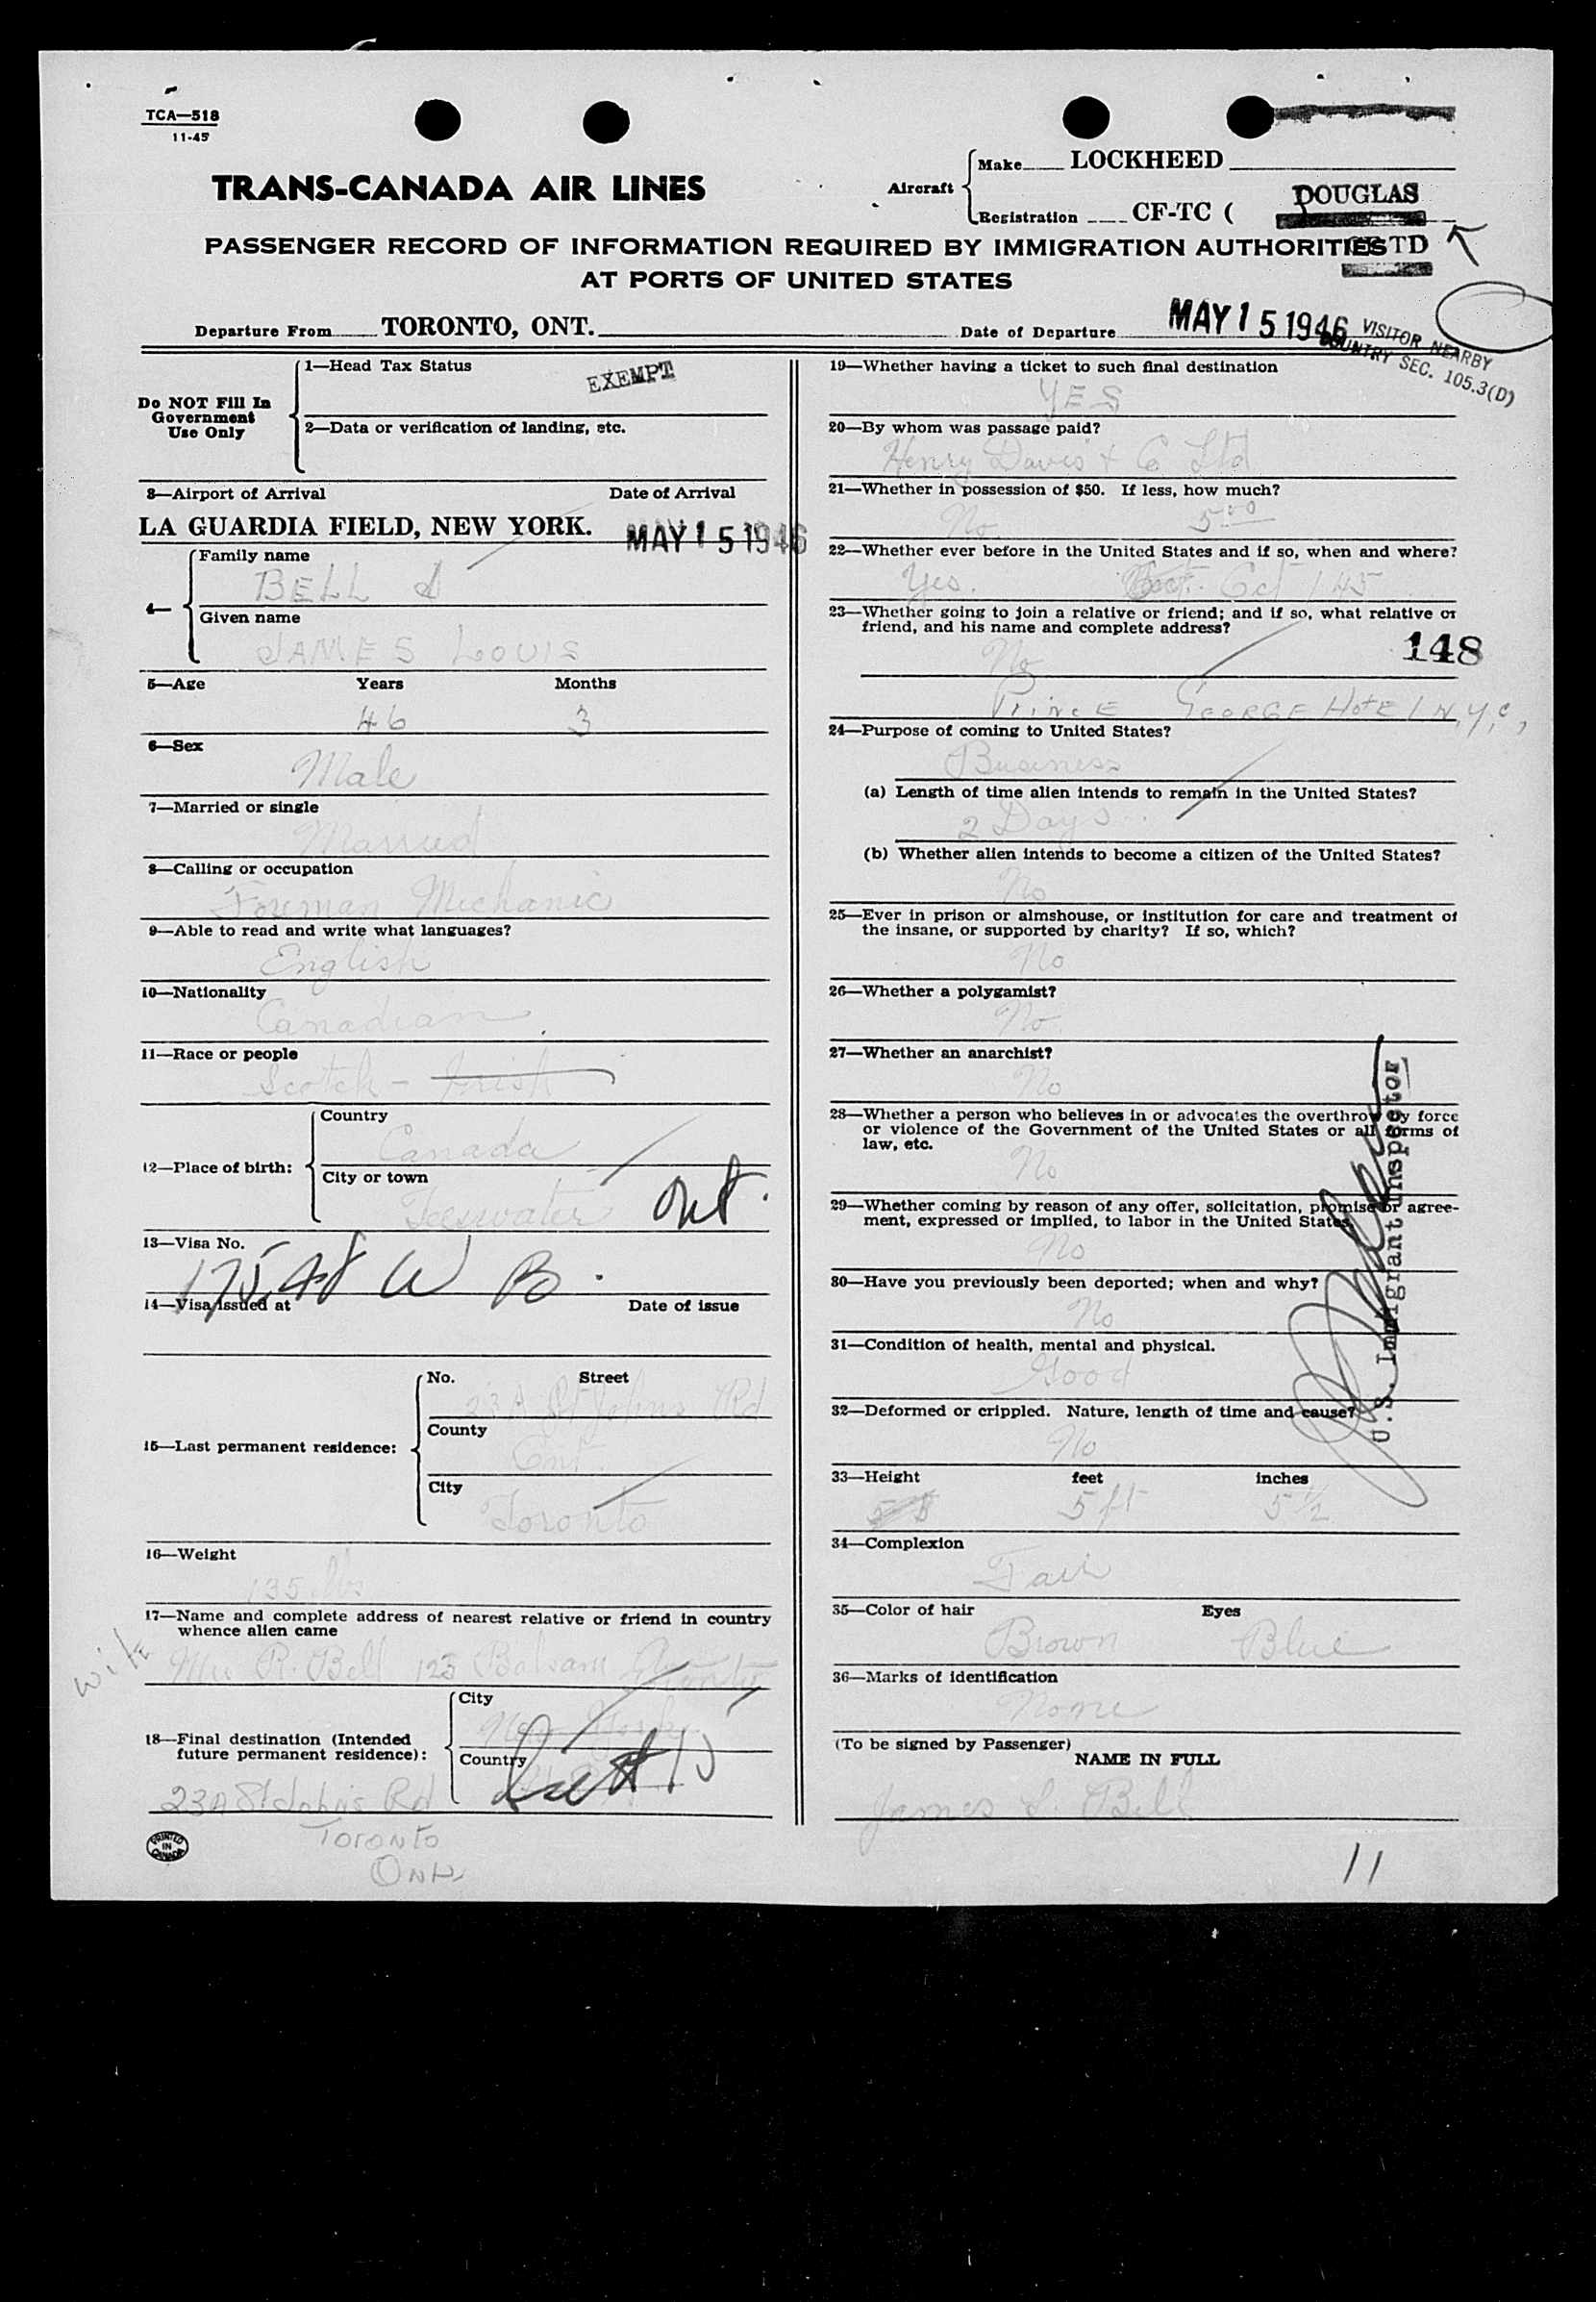 TCA—518
11-45
TRANS-CANADA AIR LINES
Aircraft
Make LOCKHEED
Registration CF-TC (
DOUGLAS
TD
PASSENGER RECORD OF INFORMATION REQUIRED BY IMMIGRATION AUTHORITIES
AT PORTS OF UNITED STATES
Departure From TORONTO, ONT.
Date of Departure MAY 15 1946
VISITOR NEARBY
COUNTRY SEC. 105.3(D)
Do NOT Fill In
Government
Use Only
1—Head Tax Status
EXEMPT
2—Data or verification of landing, etc.
3—Airport of Arrival Date of Arrival
LA GUARDIA FIELD, NEW YORK. MAY 15 1946
4—
Family name
BELL
Given name
JAMES LOUIS
5—Age Years Months
46 3
6—Sex
Male
7—Married or single
Married
8—Calling or occupation
Foreman Mechanic
9—Able to read and write what languages?
English
10—Nationality
Canadian
11—Race or people
Scotch - Irish
12—Place of birth:
Country
Canada
City or town
Teeswater Ont.
13—Visa No.
17548 W B.
14—Visa issued at Date of issue
15—Last permanent residence:
No. Street
23A St Johns Rd
County
Ont.
City
Toronto
16—Weight
135 lbs
17—Name and complete address of nearest relative or friend in country
whence alien came
wife
Mrs R. Bell 123 Balsam Toronto
18—Final destination (Intended
future permanent residence):
City
New York
Country
23A St John's Rd
Toronto
Ont.
PRINTED
IN
CANADA
19—Whether having a ticket to such final destination
YES
20—By whom was passage paid?
Henry Davis + Co Ltd
21—Whether in possession of $50. If less, how much?
No 5.00
22—Whether ever before in the United States and if so, when and where?
Yes. Oct 1945
23—Whether going to join a relative or friend; and if so, what relative or
friend, and his name and complete address?
No
148
PrincE GEORGE HotEl N,Y,C,
24—Purpose of coming to United States?
Business
(a) Length of time alien intends to remain in the United States?
2 Days
(b) Whether alien intends to become a citizen of the United States?
No
25—Ever in prison or almshouse, or institution for care and treatment of
the insane, or supported by charity? If so, which?
No
26—Whether a polygamist?
No
27—Whether an anarchist?
No
28—Whether a person who believes in or advocates the overthrow by force
or violence of the Government of the United States or all forms of
law, etc.
No
29—Whether coming by reason of any offer, solicitation, promise or agree-
ment, expressed or implied, to labor in the United States.
No
30—Have you previously been deported; when and why?
No
31—Condition of health, mental and physical.
Good
32—Deformed or crippled. Nature, length of time and cause?
No
U.S. Immigrant Inspector
33—Height feet inches
5 ft 5 1/2
34—Complexion
Fair
35—Color of hair Eyes
Brown Blue
36—Marks of identification
None
(To be signed by Passenger)
NAME IN FULL
James L. Bell
11